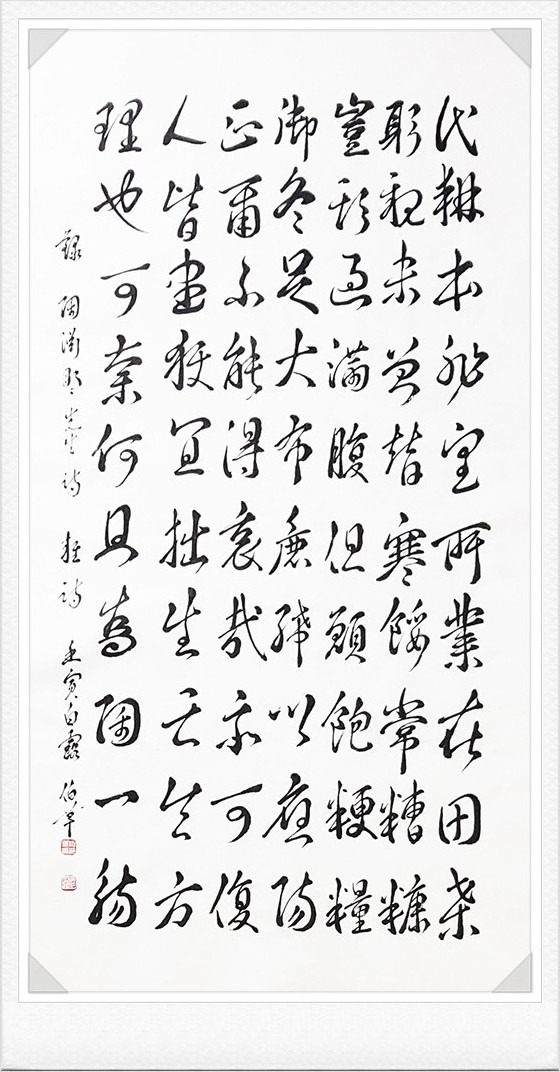 代耕本非望所業在田桑
躬親未曾替寒餒常糟糠
豈期過滿腹但願飽粳糧
御冬足大布麤絺以應陽
正爾不能得哀哉亦可傷
人皆盡獲宜拙生失其方
理也可奈何且為陶一觴
錄 陶淵明先生詩 雜詩 壬寅白露